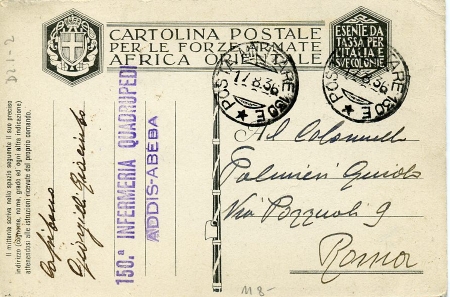 CARTOLINA POSTALE
PER LE FORZE ARMATE
AFRICA ORIENTALE
ESENTE DA
TASSA PER
L'ITALIA E
SUE COLONIE
POSTA MILITARE 150 E
17.8.36
POSTA MILITARE 150 E
17.8.36
D21-2
Il mittente scriva nello spazio seguente il suo preciso
indirizzo (cognome, nome, gradi ed ogni altra indicazione)
attenendosi alle istruzioni ricevute dal proprio comando.
Capitano
150.ª INFERMERIA QUADRUPEDI
ADDIS-ABEBA
Al Colonnello
Palmieri Guido
Via Pozzuoli 9
Roma
118-